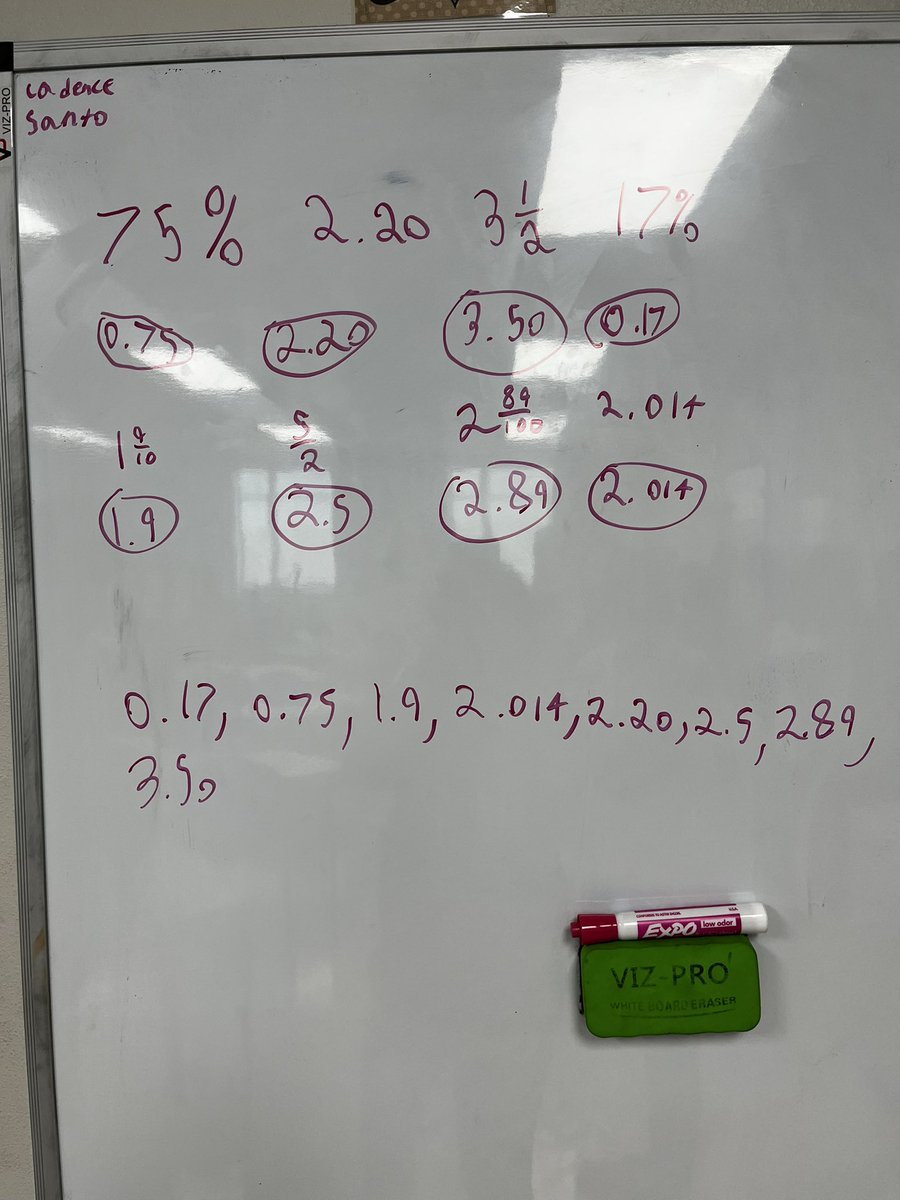 VIZ-PRO
Cadence
Santo
75% 2.20 3 1/2 17%
0.75 2.20 3.50 0.17
1 9/10 5/2 2 89/100 2.014
1.9 2.5 2.89 2.014
0.17, 0.75, 1.9, 2.014, 2.20, 2.5, 2.89,
3.50
USA
EXPO low odor
VIZ-PRO
WHITE BOARD ERASER